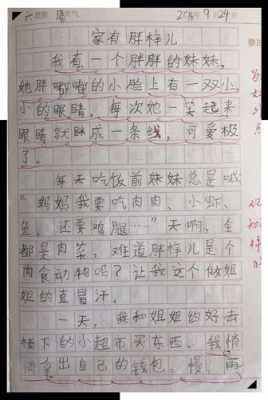 家有胖样儿
我有一个胖胖的妹妹,
她胖嘟嘟的小脸上有一双小
小的眼睛,每次她一笑起来
眼睛就眯成一条线,可爱极
了。
每天吃饭前妹妹总是喊
"妈妈我要吃肉肉、小虾、
鱼,还要 腿…"天啊,全
都是肉菜,难道胖样儿是个
肉食动物吗?让我这个做姐
姐的直冒汗。
一天,我和姐姐约好去
楼下的小超市买东西。我悄
悄拿出自己的钱包,慢,再